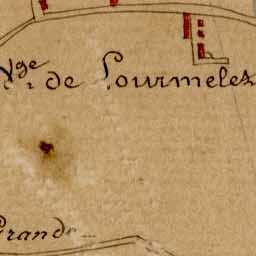 Vge de Lourmelez
Grande